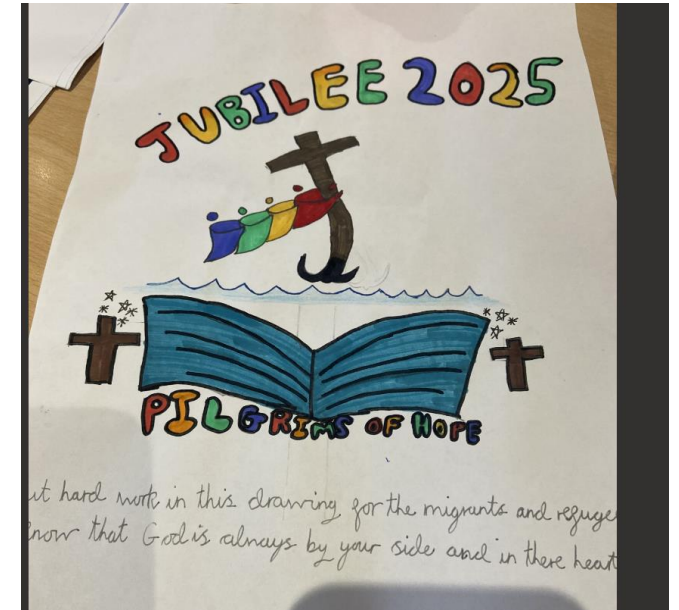 JUBILEE 2025
PILGRIMS OF HOPE
ut hard work in this drawing for the migrants and refuge
know that God is always by your side and in there heart